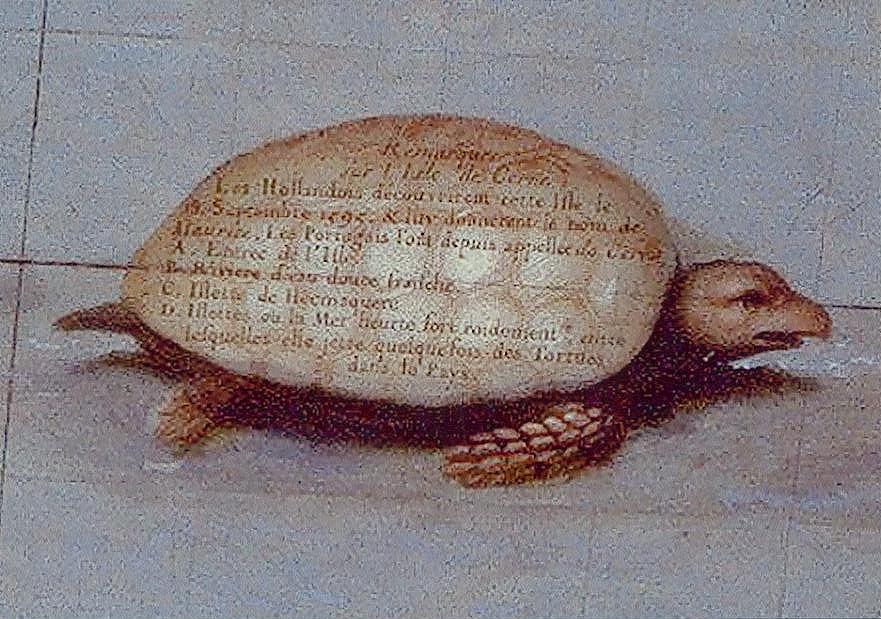 Remarques
sur l'Isle de Cerné.
Les Hollandois decouvrirent cette Isle le
18. Septembre & luy donnerent le nom de
Maurice. Les Portugais l'ont depuis appellée do Cerné
A. Entree de l'Isle
B. Riviere d'eau douce
C. Islette de
D. Islettes ou la Mer heurte fort roidement entre
lesquelles elle jette quelquefois des Tortues
dans le Pays.